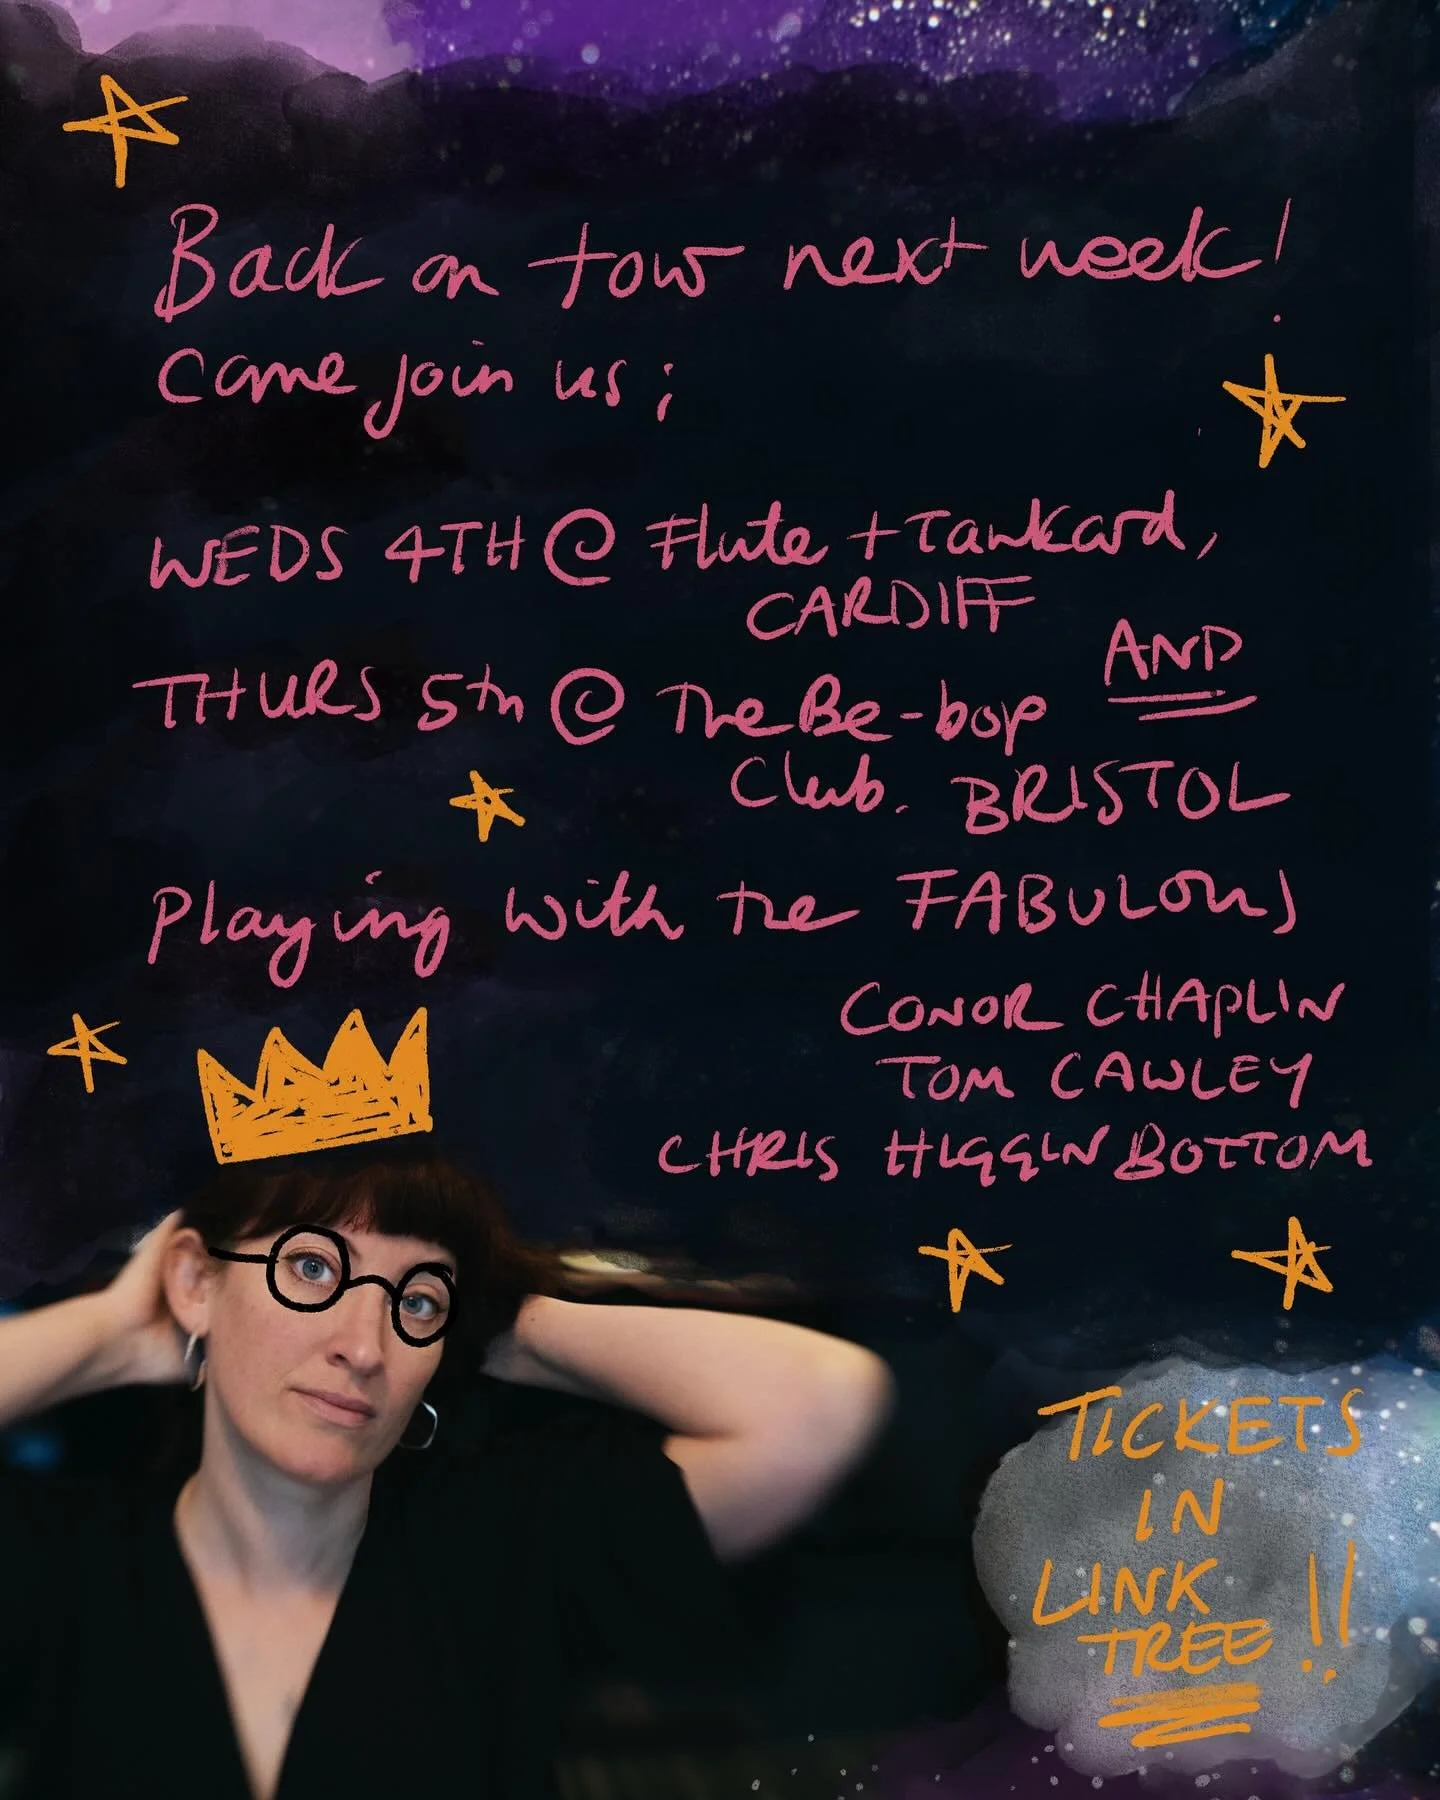 Back on tour next week!
Come join us;
WEDS 4TH @ Flute + Tankard,
CARDIFF
AND
THURS 5th @ The Be-bop
Club. BRISTOL
Playing with the FABULOUS
CONOR CHAPLIN
TOM CAWLEY
CHRIS HIGGINBOTTOM
TICKETS
IN
LINK
TREE!!